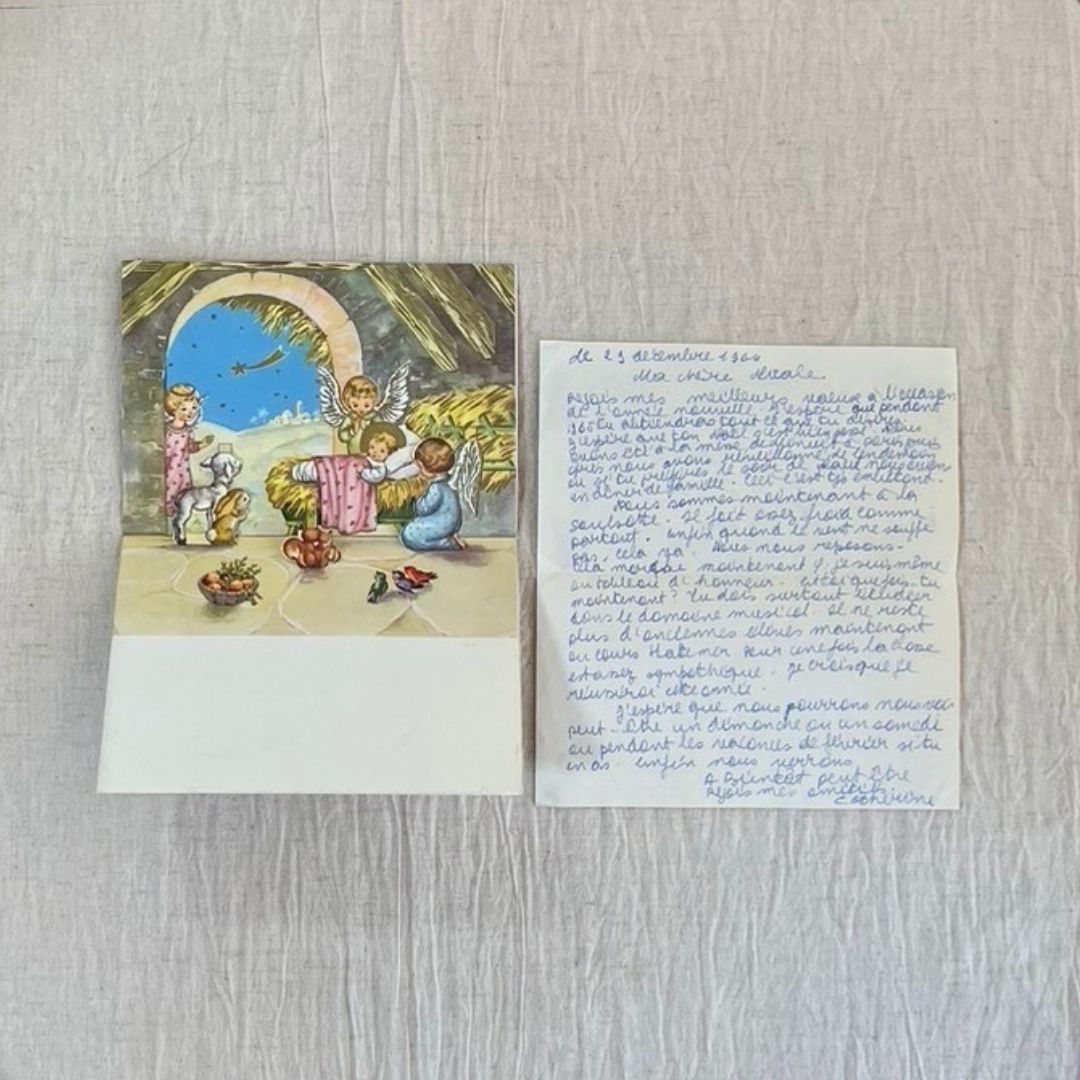 Le 29 décembre 1964
Ma chère
Reçois mes meilleurs vœux à l'occasion
de l'année nouvelle. J'espère que pendant
1965 tu obtiendras tout ce que tu désires.
J'espère que ton Noël s'est bien passé. Nous
avons été à la messe de minuit à puis
après nous avons réveillonné. Le lendemain
ou si tu préfères le soir de Noël nous avons
un dîner de famille. Ceci c'est très
Nous sommes maintenant à la
Il fait assez froid comme
partout. Enfin quand le vent ne souffle
pas, cela va. Nous nous reposons.
maintenant je suis même
au tableau d'honneur. et toi que fais-tu
maintenant? Tu dois surtout étudier
dans le domaine musical. Il ne reste
plus d'anciennes élèves maintenant
au cours Hattemer. Pour une fois la classe
est assez sympathique. Je crois que je
réussirai cette année.
J'espère que nous pourrons nous voir
peut-être un dimanche ou un samedi
ou pendant les vacances de février si tu
en as. Enfin nous verrons
A Bientôt peut être
Reçois mes amitiés
Catherine